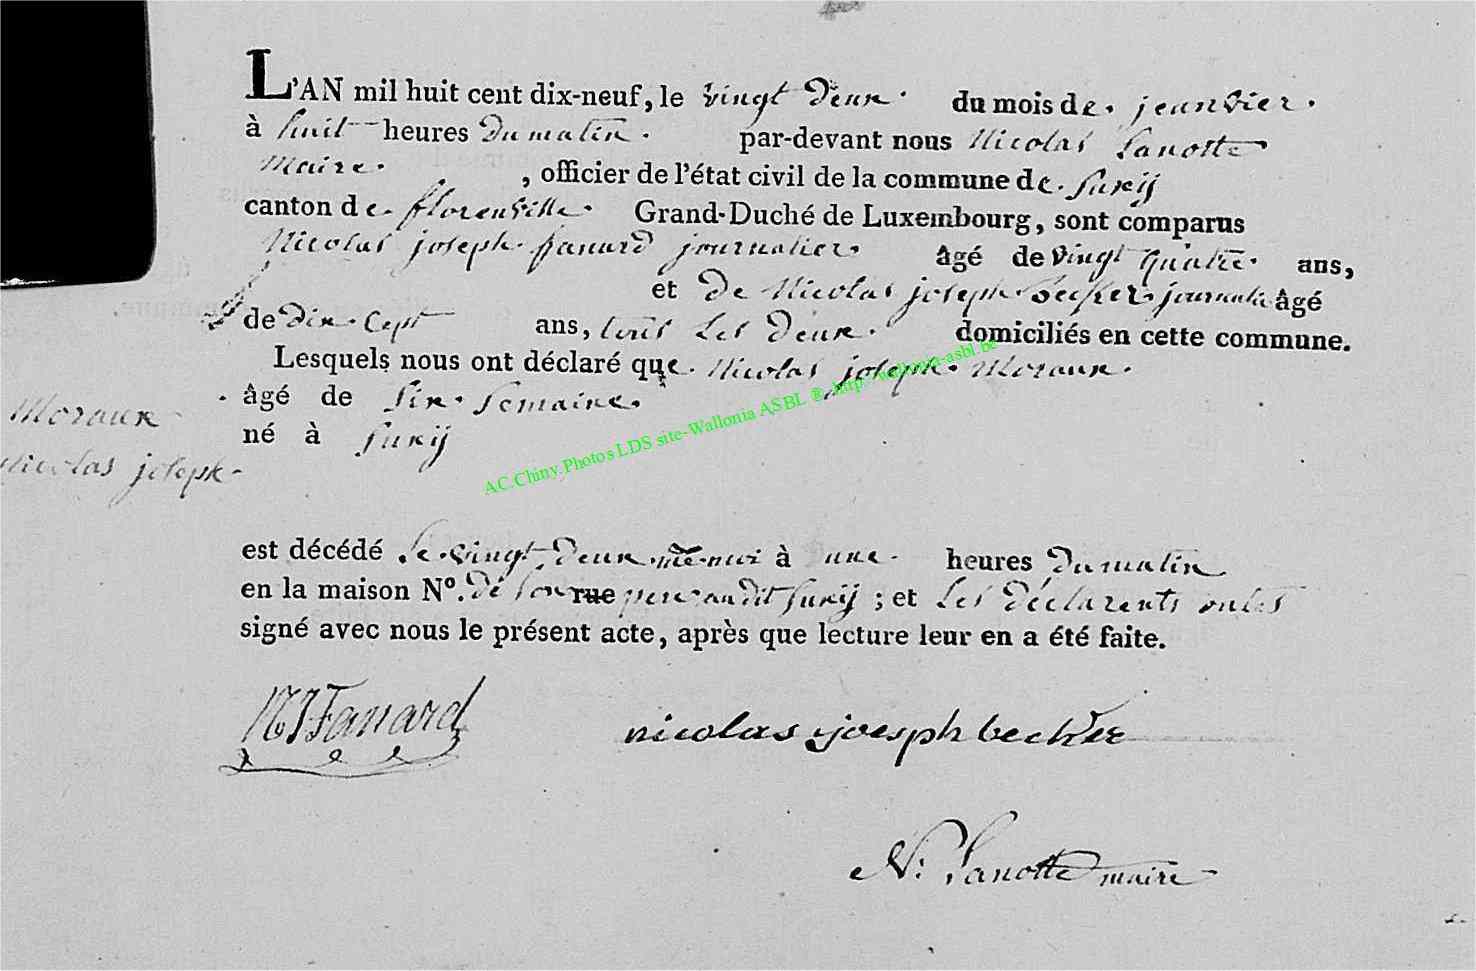 L'AN mil huit cent dix-neuf, le vingt deux du mois de jeanvier
à huit heures du matin par-devant nous Nicolas Lanotte
maire , officier de l'état civil de la commune de Suxij
canton de florenville Grand-Duché de Luxembourg, sont comparus
Nicolas joseph fanard journalier âgé de vingt quatre ans,
et de Nicolas joseph becker journalie âgé
de dix cept ans, tous Les deux domiciliés en cette commune.
Lesquels nous ont déclaré que Nicolas joseph Moraux
âgé de Six Semaine
né à Suxij
Moraux
Nicolas joseph
AC.Chiny.Photos LDS site-Wallonia ASBL ® http://wallonia-asbl.be
est décédé le vingt deux à une heures du matin
en la maison N°. de son rue pere au dit Suxij ; et Les déclarents ont
signé avec nous le présent acte, après que lecture leur en a été faite.
NJFanard
nicolas joesph becker
N: Lanotte maire